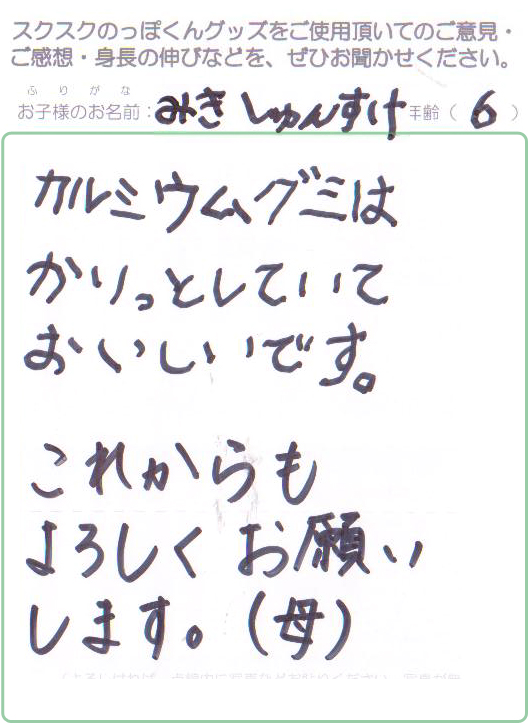 スクスクのっぽくんグッズをご使用頂いてのご意見・
ご感想・身長の伸びなどを、ぜひお聞かせください。
ふりがな
お子様のお名前：みきしゅんすけ 年齢（6）
カルミウムグミは
かりっとしていて
おいしいです。
これからも
よろしくお願い
します。（母）